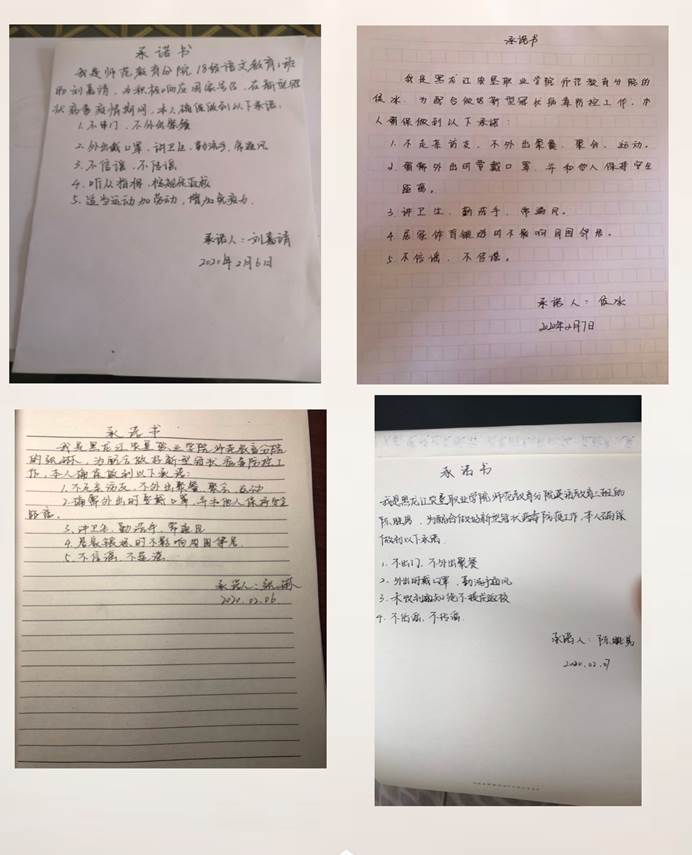 承诺书
我是师范教育分院18级语文教育1班
的刘嘉靖,为积极响应国家号召,在新型冠
状病毒疫情期间,本人确保做到以下承诺:
1.不串门,不外出聚餐
2.外出戴口罩,讲卫生,勤洗手,常通风
3.不信谣,不传谣
4.听从指挥,
5.适当运动加劳动,增加免疫力.
承诺人:刘嘉靖
2020年2月6日
承诺书
我是黑龙江农垦职业学院师范教育分院的
侯冰,为配合做好新型冠状病毒防控工作,本
人确保做到以下承诺:
1.不走亲访友,不外出聚餐、聚会、运动。
2.确需外出时要戴口罩,并和他人保持安全
距离。
3.讲卫生,勤洗手,常通风。
4.居家体育锻炼时不影响周围邻居。
5.不信谣,不传谣。
承诺人:侯冰
2020年2月7日
承诺书
我是黑龙江农垦职业学院师范教育分院
的张,为配合做好新型冠状病毒防控工
作,本人确保做到以下承诺:
1.不走亲访友,不外出聚餐,聚会,运动
2.确需外出时要戴口罩,并和他人保持安全
距离.
3.讲卫生,勤洗手,常通风
4.居家锻炼时不影响周围邻居
5.不信谣,不传谣
承诺人:张
2020.02.06
承诺书
我是黑龙江农垦职业学院师范教育分院英语教育二班的
陈,为配合做好新型冠状病毒防控工作,本人确保
做到以下承诺:
1.不出门,不外出聚餐
2.外出时戴口罩,勤洗手通风
3.未收到通知绝不提前返校
4.不信谣,不传谣.
承诺人:陈
2020.02.07